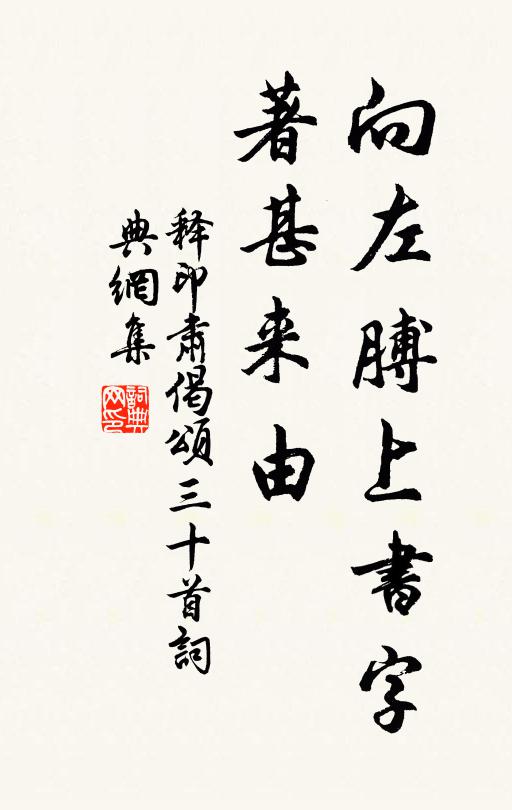 向左膊上書字
著甚来由
释印肃偈頌三十首詞
典網集
詞典网印